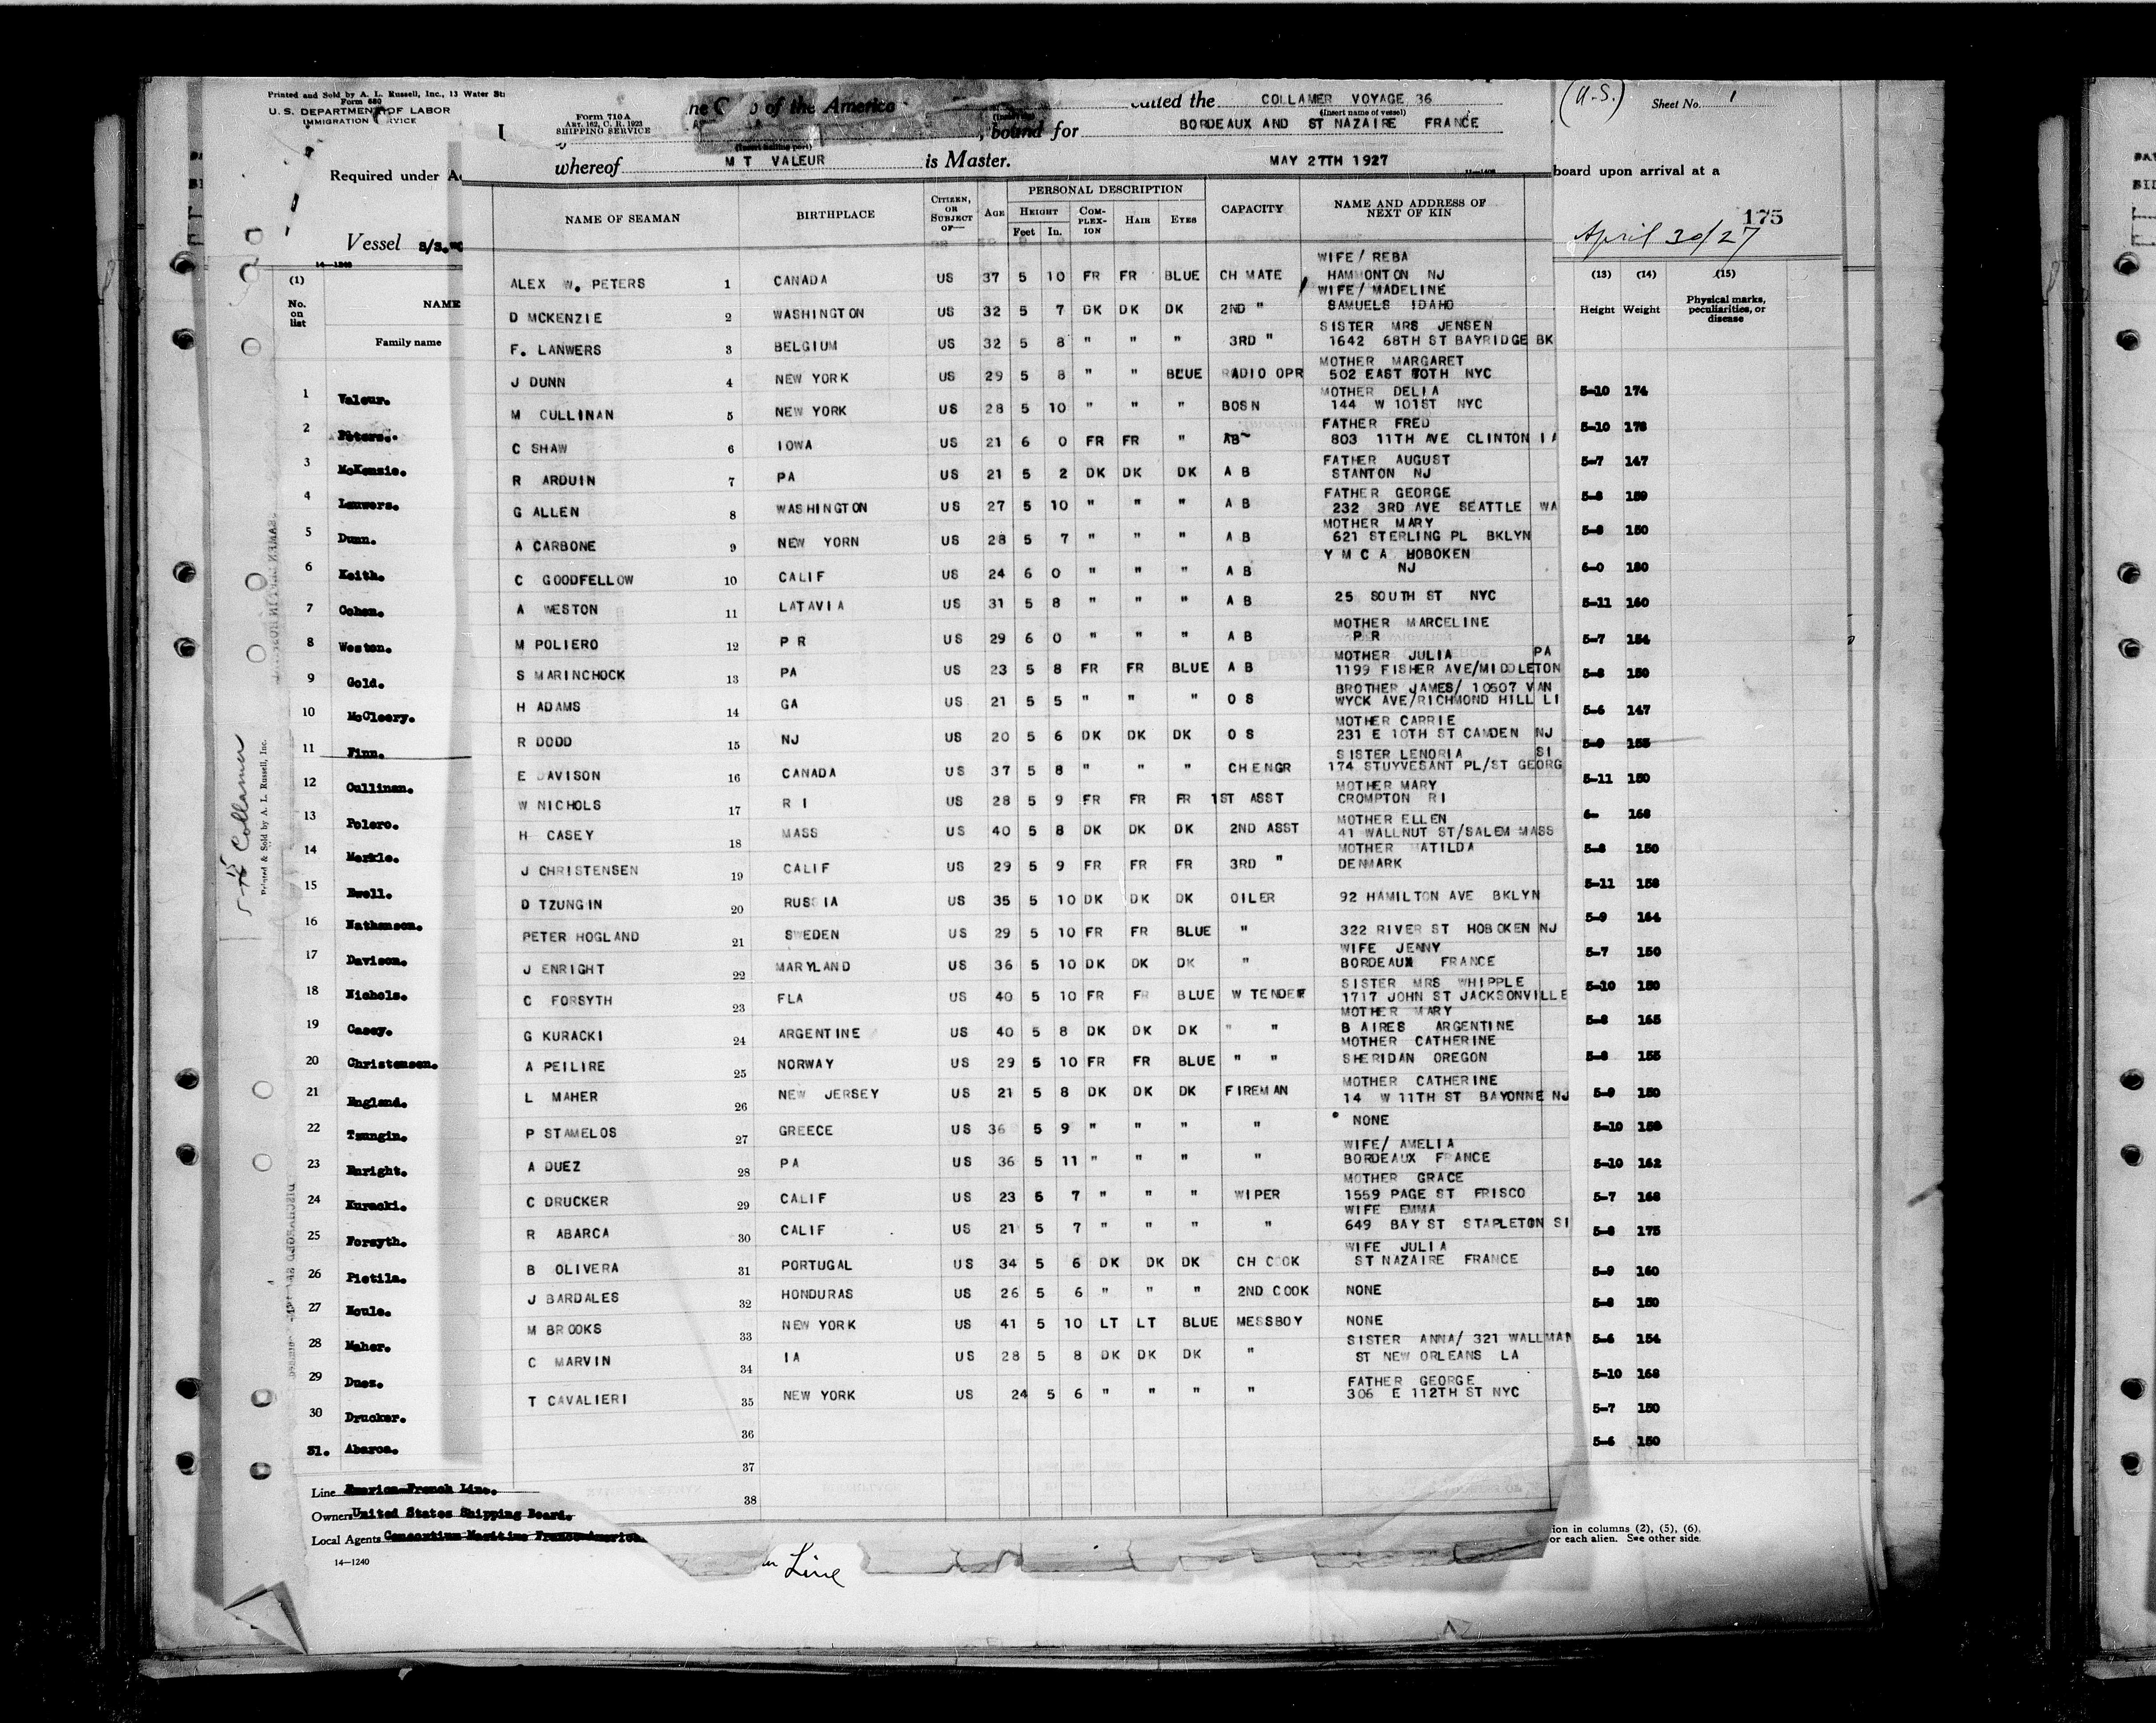 Printed and Sold by A. L. Russell, Inc., 13 Water
Form 680
U. S. DEPARTMENT OF LABOR
IMMIGRATION
Required under
Vessel S/S.
14—1240
(1)
No. on list
NAME
Family name
1 Valeur.
2 Peters.
3 McKenzie.
4 Lauwers.
5 Dunn.
6 Keith.
7 Cohen.
8 Weston.
9 Gold.
10 McCleery.
11 Finn.
12 Cullinan.
13 Polero.
14 Merkle.
15 Ewell.
16 Nathanson.
17 Davison.
18 Nichols.
19 Casey.
20 Christensen.
21 England.
22 Tzungin.
23 Enright.
24 Kuracki.
25 Forsyth.
26 Pietila.
27 Houle.
28 Maher.
29 Duez.
30 Drucker.
31. Abarca.
Line America French Line.
Owners United States Shipping Board.
Local Agents Consortium Maritime Franco-American
14—1240
Line
Collamer
Printed & Sold by A. L. Russell, Inc.
Form 710A
ART. 162, C. R. 1923
SHIPPING SERVICE
of the America
called the COLLAMER VOYAGE 36
(Insert name of vessel)
, bound for BORDEAUX AND ST NAZAIRE FRANCE
whereof M T VALEUR is Master. MAY 27TH 1927
NAME OF SEAMAN BIRTHPLACE CITIZEN, OR SUBJECT OF— AGE PERSONAL DESCRIPTION CAPACITY NAME AND ADDRESS OF NEXT OF KIN
HEIGHT COMPLEXION HAIR EYES
Feet In.
WIFE/ REBA
ALEX W. PETERS 1 CANADA US 37 5 10 FR FR BLUE CH MATE HAMMONTON NJ
WIFE/ MADELINE
D MCKENZIE 2 WASHINGTON US 32 5 7 DK DK DK 2ND " SAMUELS IDAHO
SISTER MRS JENSEN
F. LANWERS 3 BELGIUM US 32 5 8 " " " 3RD " 1642 68TH ST BAYRIDGE BK
MOTHER MARGARET
J DUNN 4 NEW YORK US 29 5 8 " " BLUE RADIO OPR 502 EAST 80TH NYC
MOTHER DELIA
M CULLINAN 5 NEW YORK US 28 5 10 " " " BOSN 144 W 101ST NYC
FATHER FRED
C SHAW 6 IOWA US 21 6 0 FR FR " AB 803 11TH AVE CLINTON IA
FATHER AUGUST
R ARDUIN 7 PA US 21 5 2 DK DK DK A B STANTON NJ
FATHER GEORGE
G ALLEN 8 WASHINGTON US 27 5 10 " " " A B 232 3RD AVE SEATTLE WA
MOTHER MARY
A CARBONE 9 NEW YORN US 28 5 7 " " " A B 621 STERLING PL BKLYN
Y M C A HOBOKEN
C GOODFELLOW 10 CALIF US 24 6 0 " " " A B NJ
A WESTON 11 LATAVIA US 31 5 8 " " " A B 25 SOUTH ST NYC
MOTHER MARCELINE
M POLIERO 12 P R US 29 6 0 " " " A B P R
MOTHER JULIA PA
S MARINCHOCK 13 PA US 23 5 8 FR FR BLUE A B 1199 FISHER AVE/MIDDLETON
BROTHER JAMES/ 10507 VAN
H ADAMS 14 GA US 21 5 5 " " " O S WYCK AVE/RICHMOND HILL LI
MOTHER CARRIE
R DODD 15 NJ US 20 5 6 DK DK DK O S 231 E 10TH ST CAMDEN NJ
SISTER LENORIA SI
E DAVISON 16 CANADA US 37 5 8 " " " CH ENGR 174 STUYVESANT PL/ST GEORG
MOTHER MARY
W NICHOLS 17 R I US 28 5 9 FR FR FR 1ST ASST CROMPTON RI
MOTHER ELLEN
H CASEY 18 MASS US 40 5 8 DK DK DK 2ND ASST 41 WALLNUT ST/SALEM MASS
MOTHER MATILDA
J CHRISTENSEN 19 CALIF US 29 5 9 FR FR FR 3RD " DENMARK
D TZUNGIN 20 RUSSIA US 35 5 10 DK DK DK OILER 92 HAMILTON AVE BKLYN
PETER HOGLAND 21 SWEDEN US 29 5 10 FR FR BLUE " 322 RIVER ST HOBOKEN NJ
WIFE JENNY
J ENRIGHT 22 MARYLAND US 36 5 10 DK DK DK " BORDEAUX FRANCE
SISTER MRS WHIPPLE
C FORSYTH 23 FLA US 40 5 10 FR FR BLUE W TENDER 1717 JOHN ST JACKSONVILLE
MOTHER MARY
G KURACKI 24 ARGENTINE US 40 5 8 DK DK DK " " B AIRES ARGENTINE
MOTHER CATHERINE
A PEILIRE 25 NORWAY US 29 5 10 FR FR BLUE " " SHERIDAN OREGON
MOTHER CATHERINE
L MAHER 26 NEW JERSEY US 21 5 8 DK DK DK FIREMAN 14 W 11TH ST BAYONNE NJ
P STAMELOS 27 GREECE US 36 5 9 " " " " NONE
WIFE/ AMELIA
A DUEZ 28 PA US 36 5 11 " " " " BORDEAUX FRANCE
MOTHER GRACE
C DRUCKER 29 CALIF US 23 5 7 " " " WIPER 1559 PAGE ST FRISCO
WIFE EMMA
R ABARCA 30 CALIF US 21 5 7 " " " " 649 BAY ST STAPLETON SI
WIFE JULIA
B OLIVERA 31 PORTUGAL US 34 5 6 DK DK DK CH COOK ST NAZAIRE FRANCE
J BARDALES 32 HONDURAS US 26 5 6 " " " 2ND COOK NONE
M BROOKS 33 NEW YORK US 41 5 10 LT LT BLUE MESSBOY NONE
SISTER ANNA/ 321 WALLMAN
C MARVIN 34 IA US 28 5 8 DK DK DK " ST NEW ORLEANS LA
FATHER GEORGE
T CAVALIERI 35 NEW YORK US 24 5 6 " " " " 306 E 112TH ST NYC
36
37
38
(U.S.) Sheet No. 1
board upon arrival at a
175
April 30/27
(13) (14) (15)
Height Weight Physical marks, peculiarities, or disease
5-10 174
5-10 178
5-7 147
5-8 159
5-8 150
6-0 180
5-11 160
5-7 154
5-8 150
5-6 147
5-9 155
5-11 150
6- 168
5-8 150
5-11 158
5-9 164
5-7 150
5-10 150
5-8 165
5-8 155
5-9 150
5-10 158
5-10 162
5-7 168
5-8 175
5-9 160
5-8 150
5-6 154
5-10 168
5-7 150
5-6 150
ion in columns (2), (5), (6),
or each alien. See other side.